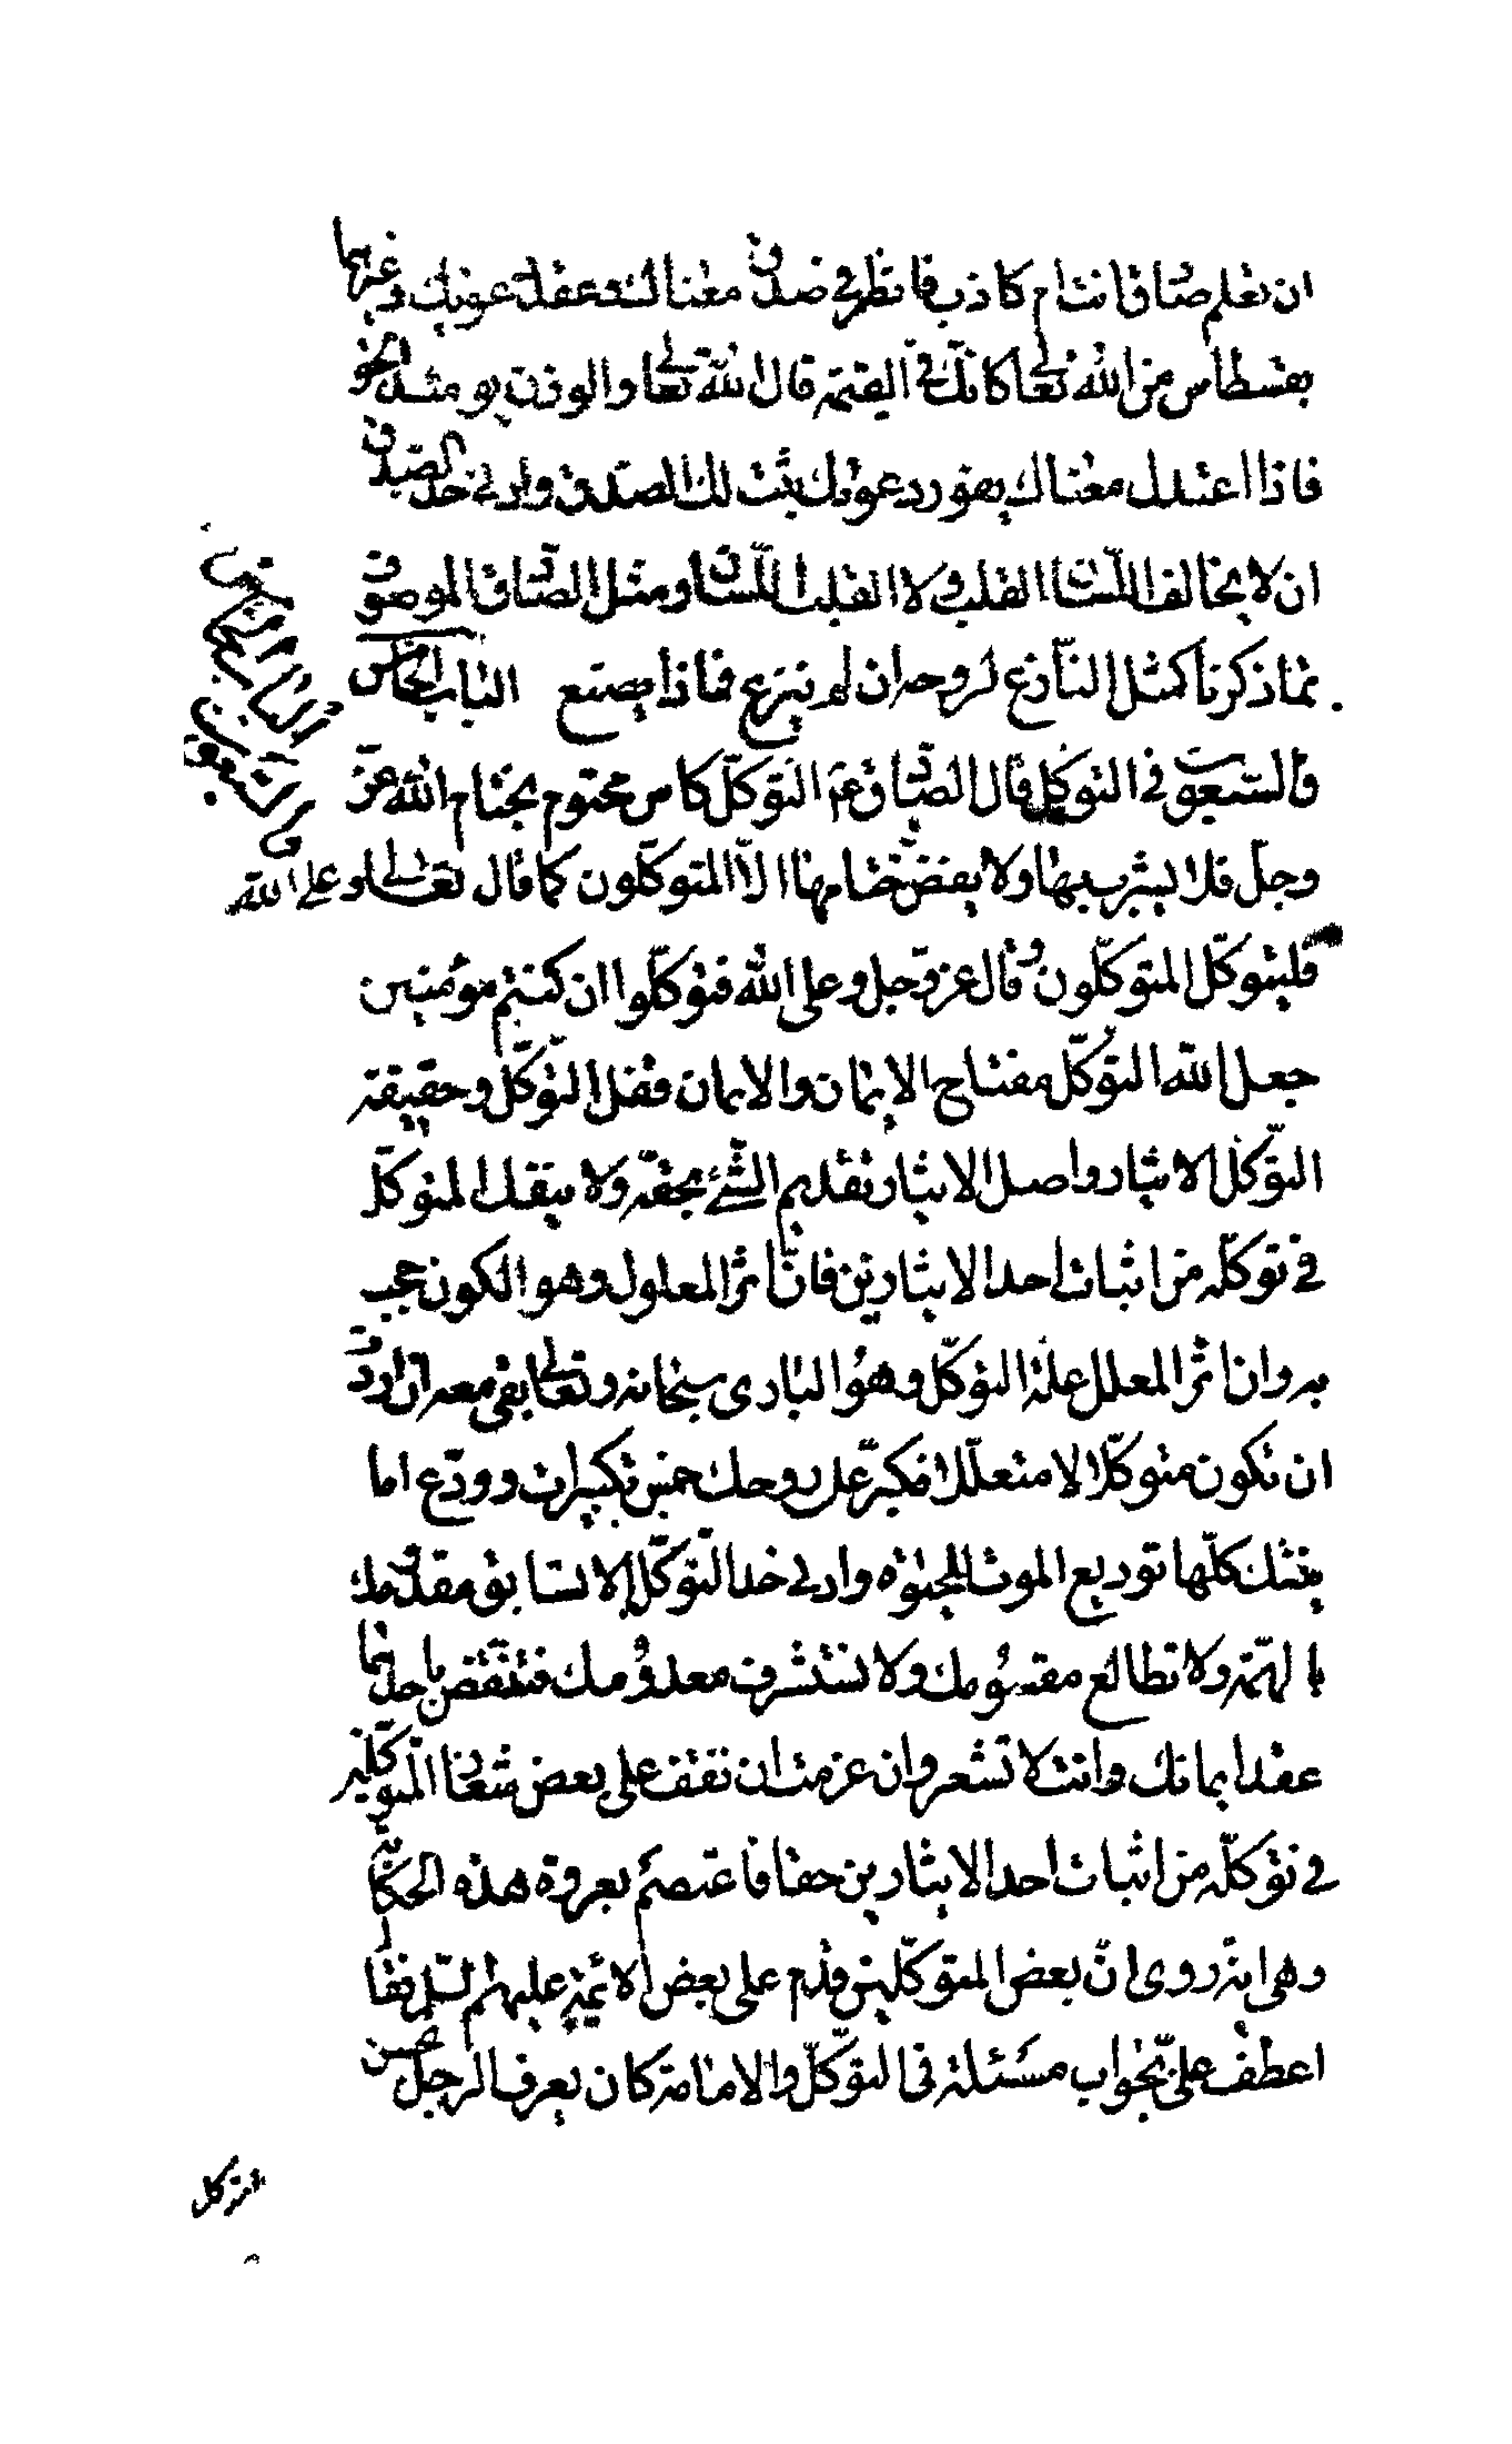 ان تعلم صادق انت ام كاذب فانظر فى صدق معناك وعقد دعويك وغيرهما
بقسطاس من الله تعالى كانك فى القيمة قال الله تعالى والوزن يومئذ الحق
فاذا اعتدل معناك بغور دعويك ثبت لك الصدق وادنى حد الصدق
ان لا يخالف اللسان القلب ولا القلب اللسان ومثل الصادق الموصوف
بما ذكرنا كمثل النازع لروحه ان لم ينزع فماذا يصنع الباب الخامس
والسبعون فى التوكل قال الصادق ع التوكل كاس مختوم بختام الله عز
وجل فلا يشرب بها ولا يفض ختامها الا المتوكلون كما قال تعالى وعلى الله
فليتوكل المتوكلون وقال عز وجل وعلى الله فتوكلوا ان كنتم مؤمنين
جعل الله التوكل مفتاح الايمان والايمان قفل التوكل وحقيقة
التوكل الايثار واصل الايثار تقديم الشئ بحقه ولا ينفك المتوكل
فى توكله من اثبات احد الايثارين فان اثر المعلول وهو الكون حجب
به وان اثر المعلل علة التوكل وهو البارى سبحانه وتعالى بقى معه ان اردت
ان تكون متوكلا لا متعللا فكبر على روحك خمس تكبيرات وودع اما
نيتك كلها توديع الموت للحيوة وادنى حد التوكل الا تسابق مقدومك
بالهمة ولا تطالع مقسومك ولا تستشرف معدومك فتنتقض باحدهما
عقد ايمانك وانت لا تشعر وان عزمت ان تقف على بعض شعار المتوكلين
فى توكله من اثبات احد الايثارين حقا فاعتصم بعروة هذه الحكاية
وهى انه روى ان بعض المتوكلين قدم على بعض الائمة عليهم السلم فقال
اعطف على بجواب مسئلة فى التوكل والامامة كان يعرف الرجل بحسن